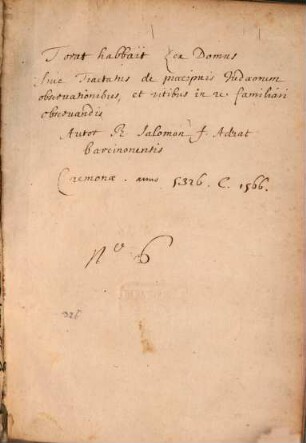 Torat habbait Lex Domus
sive Tractatus de praecipuis Judaeorum
observationibus, et ritibus in re familiari
observandis
Autor R. Salomon f. Adrat
barcinonensis
Cremonae . anno 5326. C. 1566.
N° 6
326